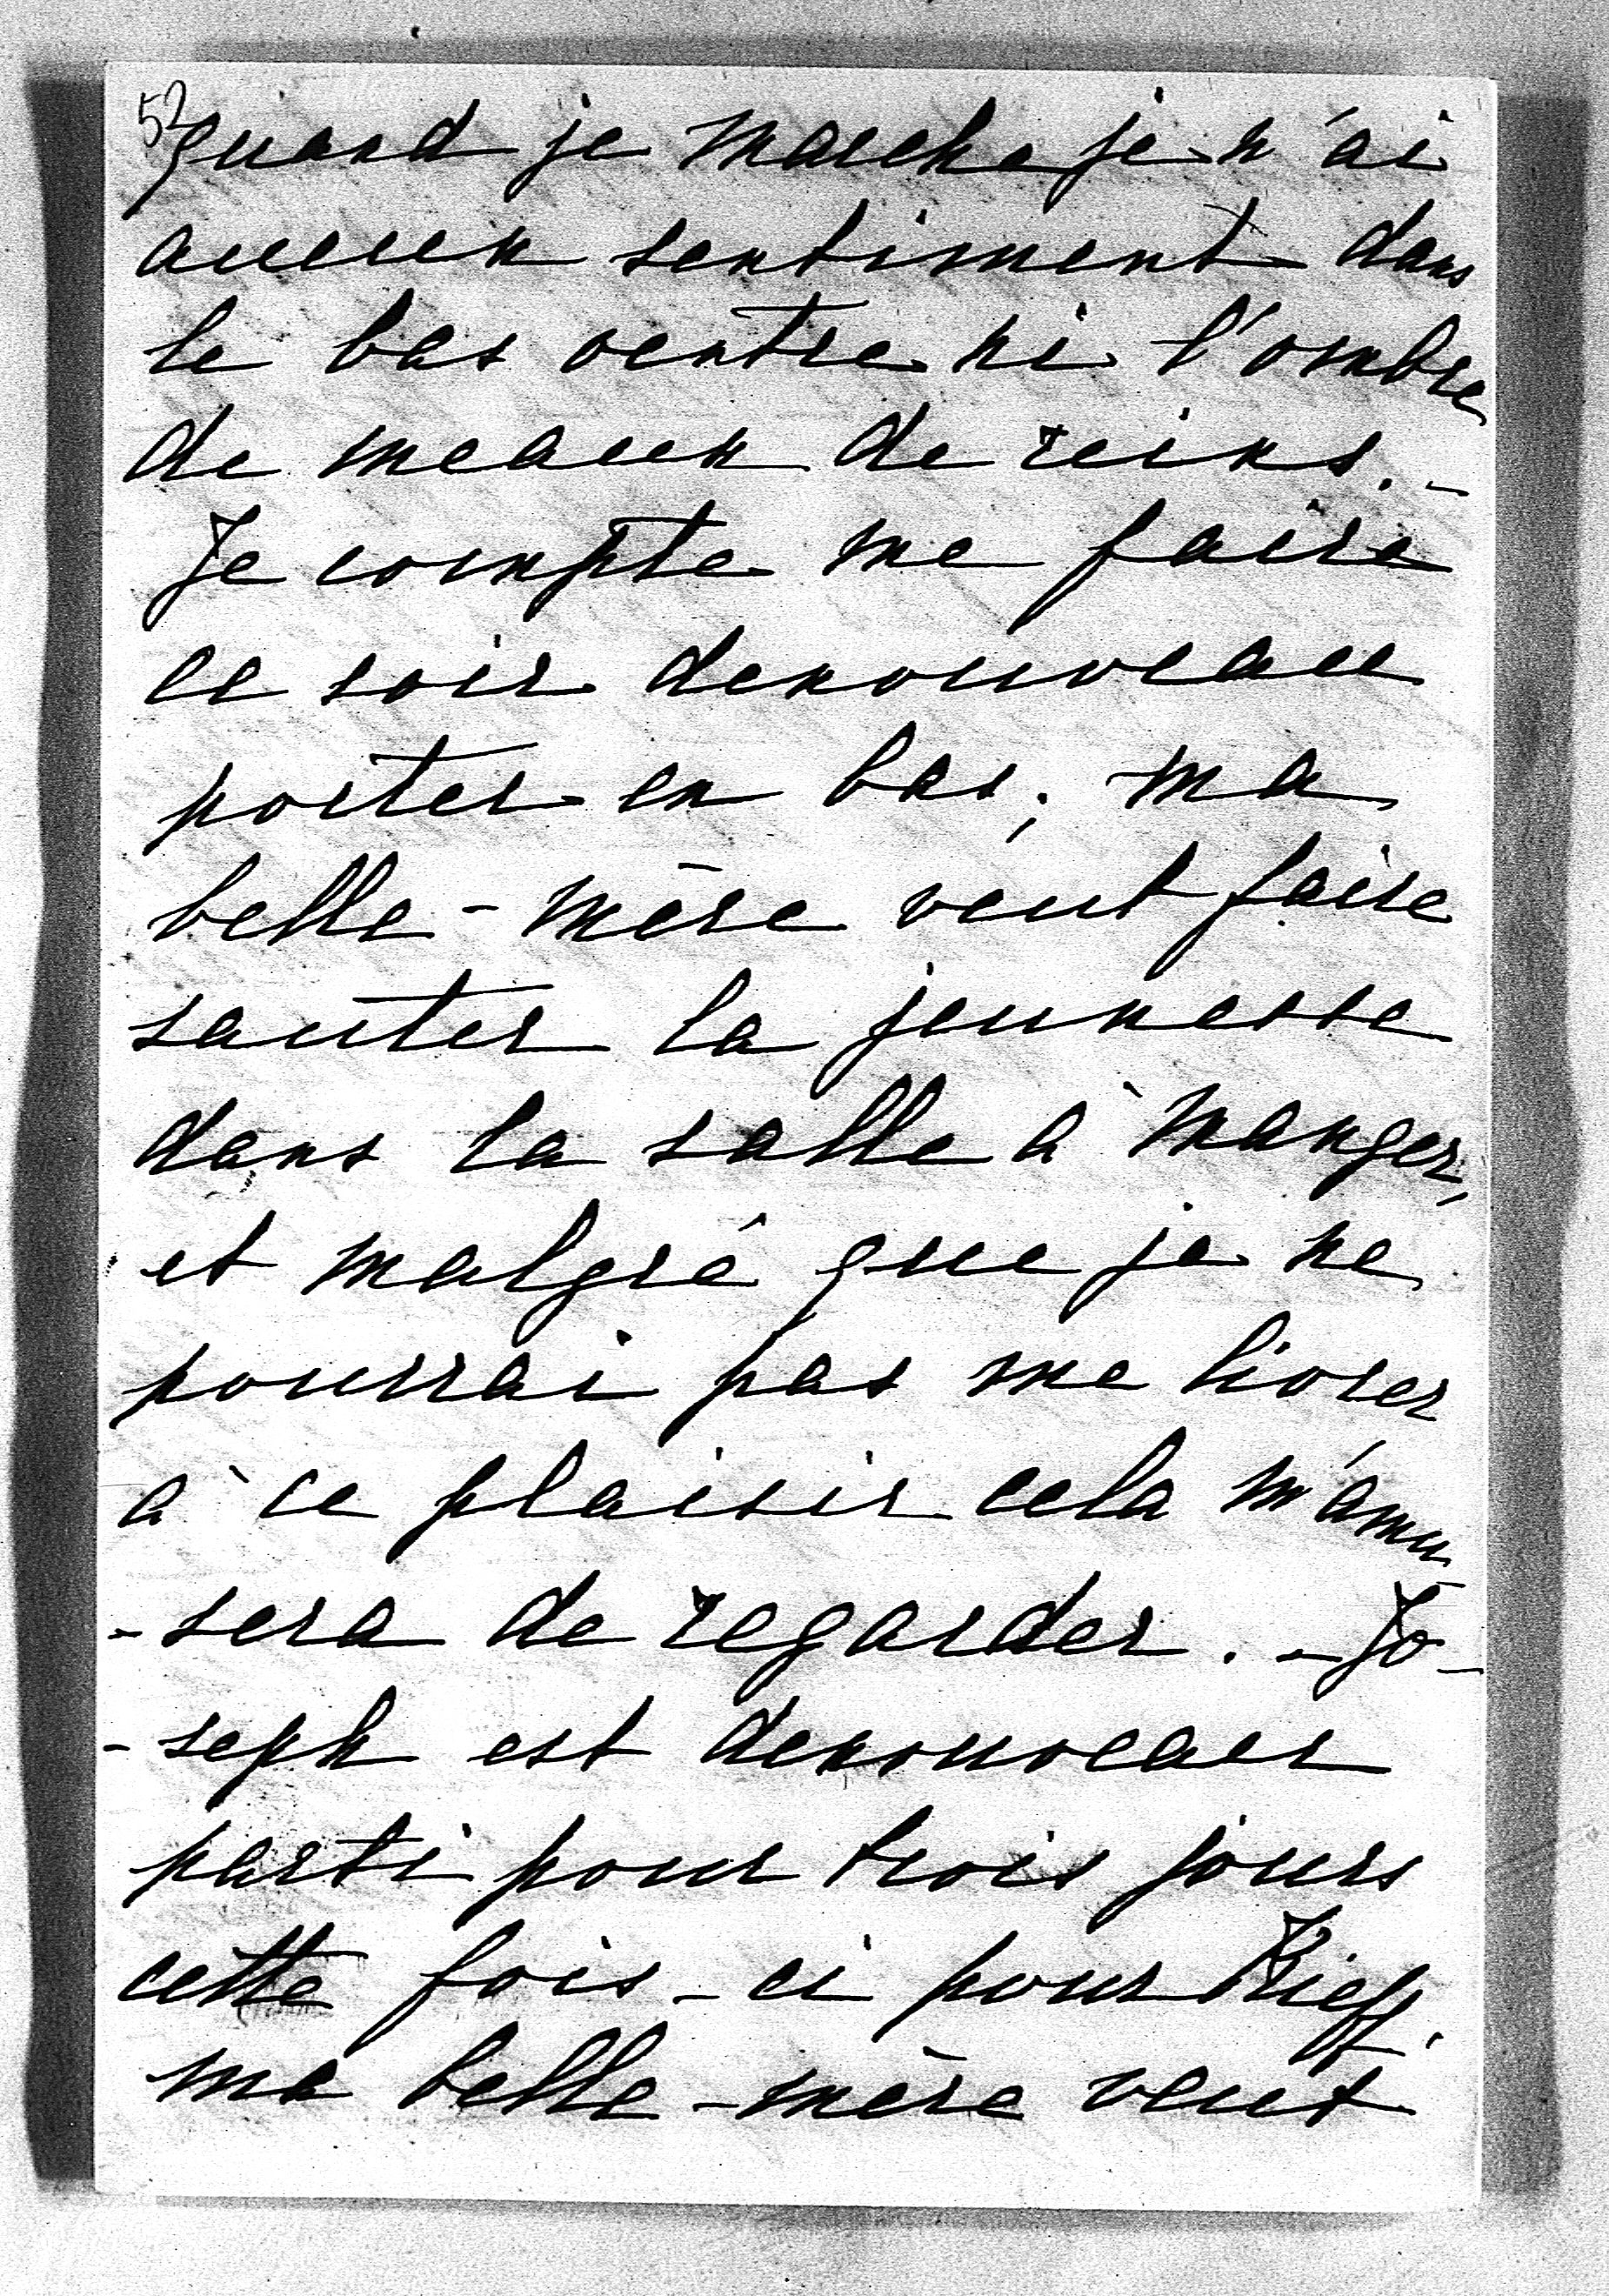 52
quand je marche je n'ai
aucun sentiment dans
le bas ventre ni l'ombre
de meaux de reins. –
Je compte me faire
ce soir denouveau
porter en bas; ma
belle-mère veut faire
sauter la jeunesse
dans la salle à manger,
et malgré que je ne
pourrai pas me livrer
à ce plaisir cela m'amu-
-sera de regarder. – Jo-
-seph est denouveau
parti pour trois jours
cette fois-ci pour Kieff,
ma belle-mère veut